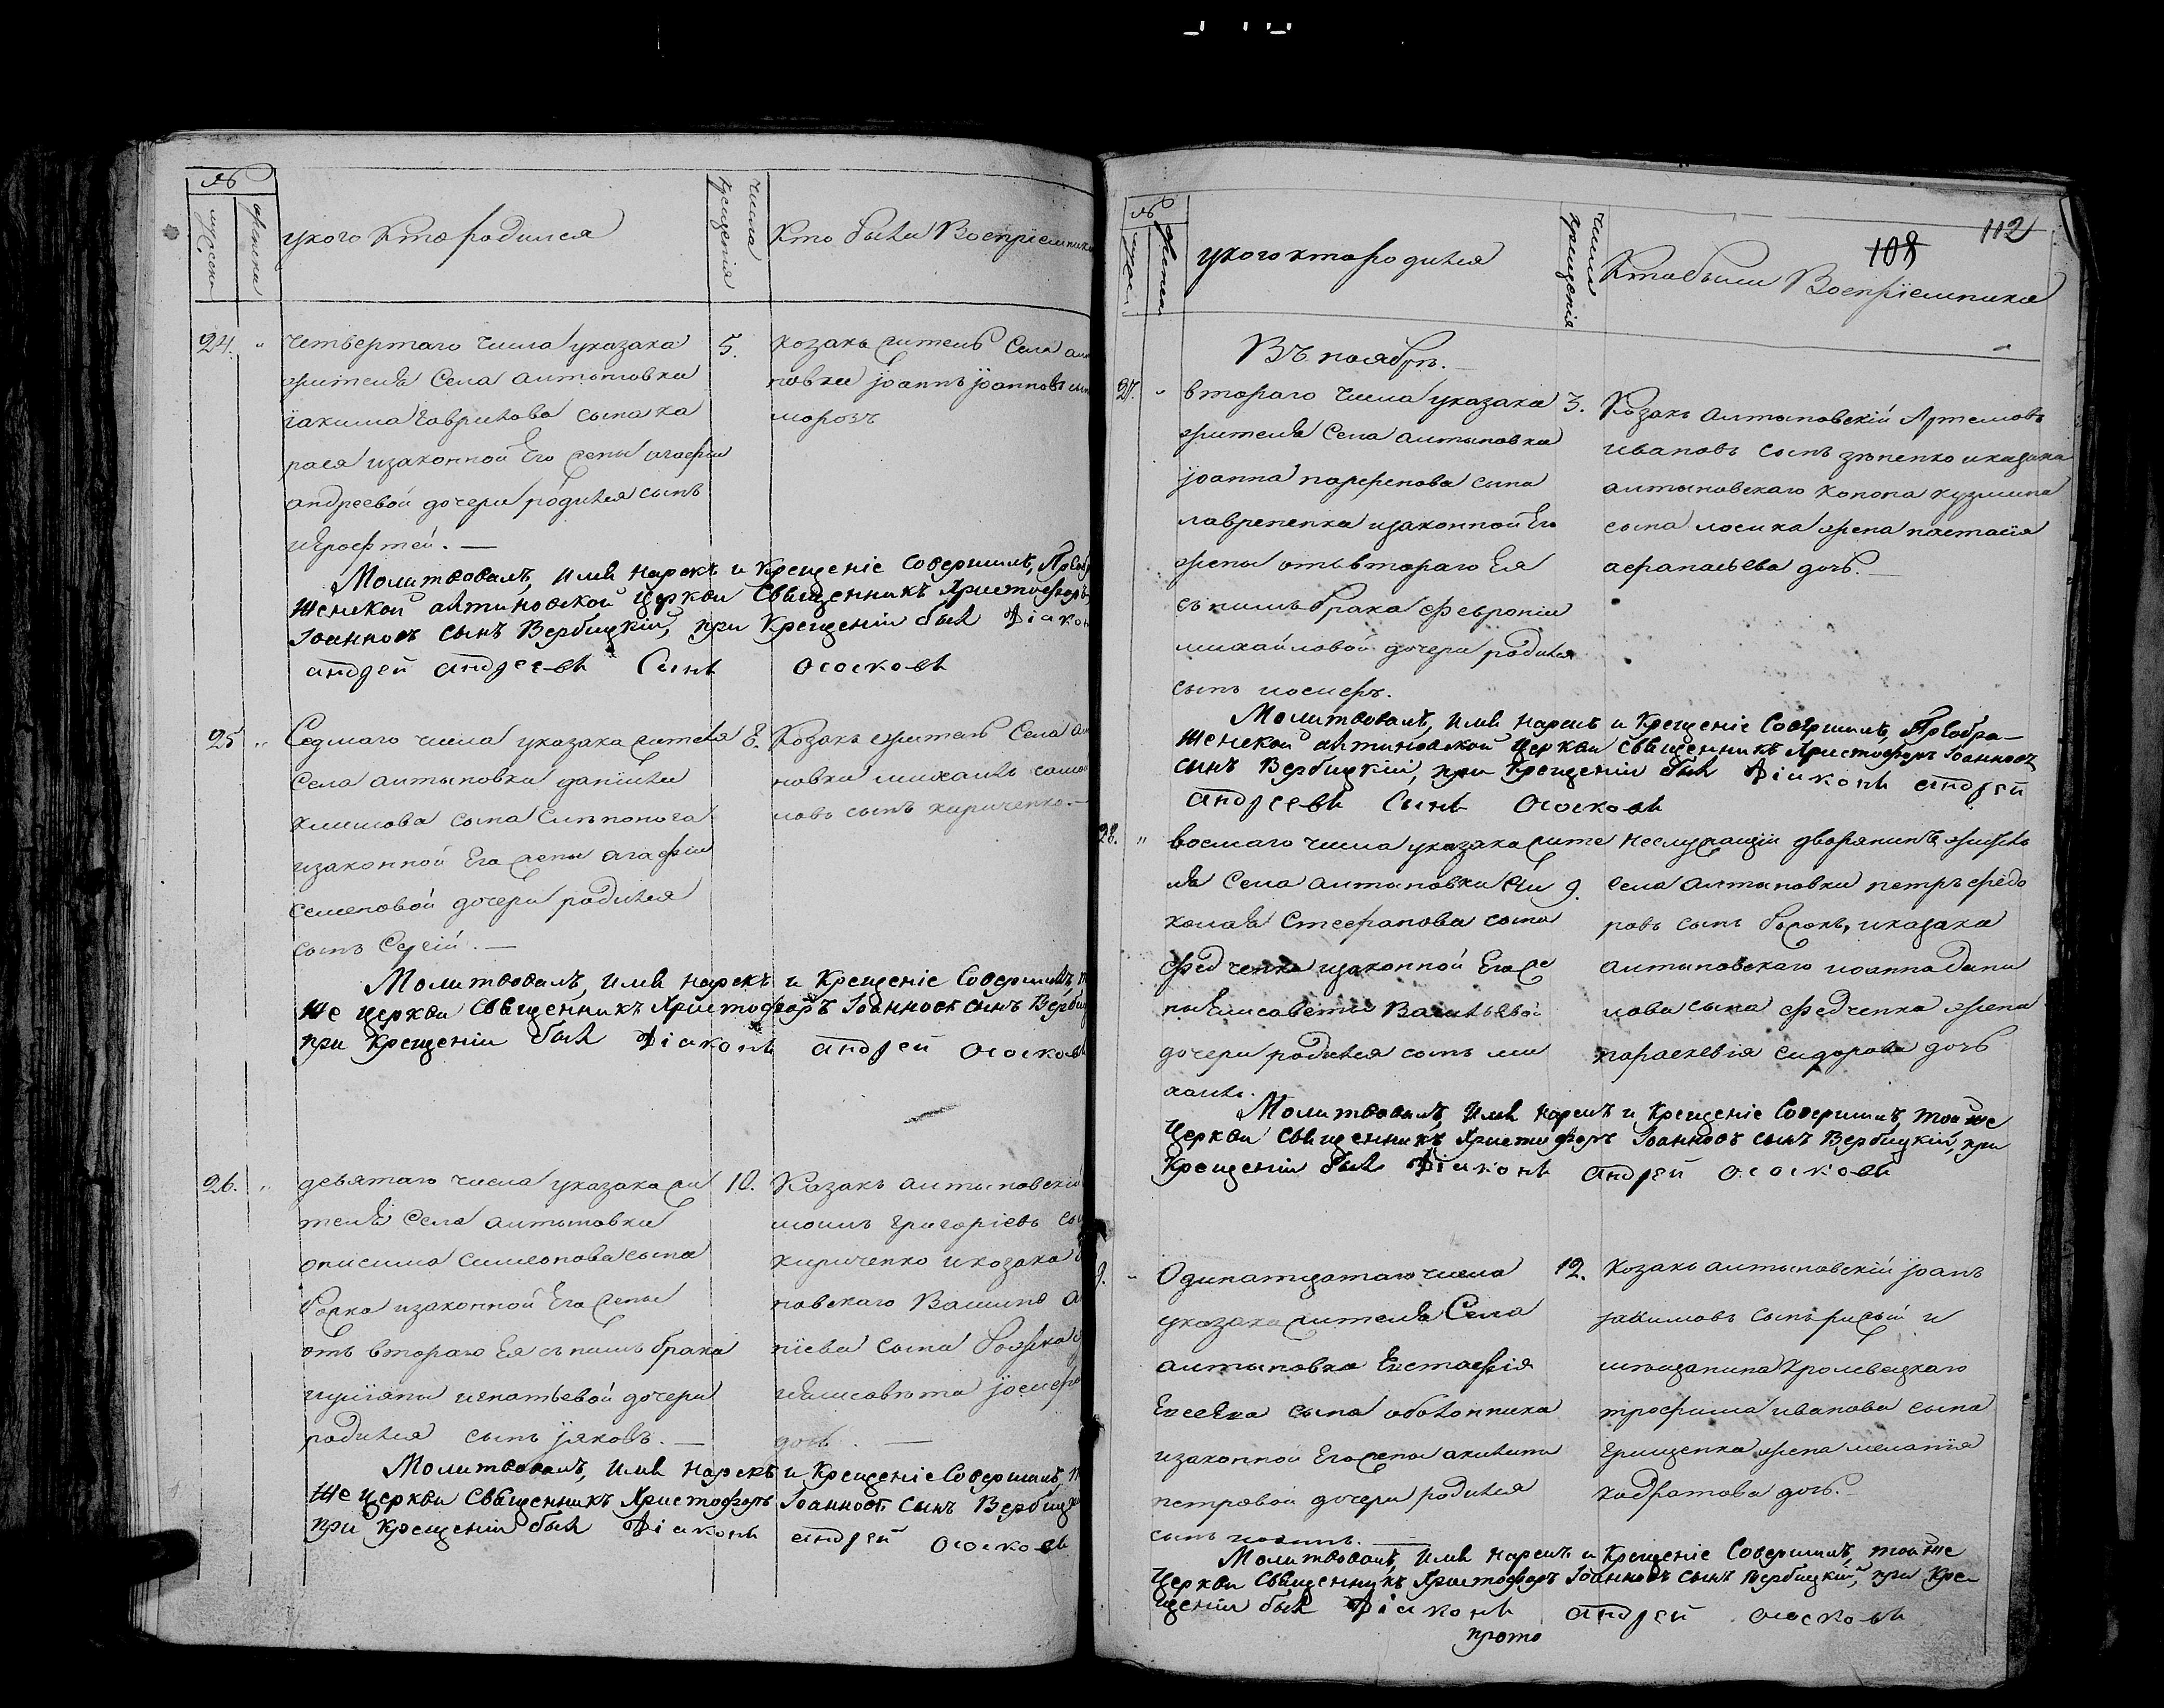 №
мужеска
женска
у кого кто родился
числа
крещенія
Кто были Воспріемники
24.
четвертаго числа у казака
жителя Села алтыновки
іакима гаврилова сына ка
рася и законной Его жены агафіи
андреевой дочери родился сынъ
іерофтей.
5.
козакъ житель Села алт
новки іоаннъ іоанновъ сын
морозъ
Молитвовалъ, имя нарекъ и Крещеніе Совершилъ, Преобр
женской алтиновской Церкви Священникъ Христофоръ
Іоанновъ сынъ Вербицкій, при Крещеніи былъ Діаконъ
андрей андреевъ Сынъ Ососковъ
25
Седмаго числа у казака жителя
Села алтыновки даніила
климова сына
и законной Его жены агафіи
семеновой дочери родился
сынъ Сергій.
8.
Козакъ житель Села ал
новки михаилъ само
ловъ сынъ кириченко.
Молитвовалъ, имя нарекъ и Крещеніе Совершилъ, т
же церкви Священникъ Христофоръ Іоанновъ сынъ Вербиц
при Крещеніи былъ Діаконъ андрей Ососковъ
26.
девятаго числа у казака жи
теля Села алтыновки
онисима симеонова сына
рожка и законной Его жены
отъ втораго Ея съ нимъ брака
іуліаны игнатьевой дочери
родился сынъ іяковъ.
10.
Казакъ алтыновскій
григоріевъ сы
кириченко и козака
новскаго
ніева сына рожка
елисавета іосифо
дочь.
Молитвовалъ, имя нарекъ и Крещеніе Совершилъ, т
же Церкви Священникъ Христофоръ Іоанновъ сынъ Вербицк
при Крещеніи былъ Діаконъ андрей Ососковъ
№
мужес
женск
у кого кто родился
числа
крещенія
Кто были Воспріемники
108
112
Въ ноябрѣ.
27.
втораго числа у казака
жителя Села алтыновки
іоанна парфенова сына
лаврененка и законной Его
жены отъ втораго Ея
съ нимъ брака февроніи
михайловой дочери родился
сынъ иосифъ.
3.
Козакъ алтыновскій Артемовъ
ивановъ сынъ зѣненко и казака
алтыновскаго конона кузмина
сына лосика жена настасія
афанасьева дочь.
Молитвовалъ, имя нарекъ и Крещеніе Совершилъ, Преобра-
женской алтиновской Церкви Священникъ Христофоръ Іоанновъ
сынъ Вербицкій, при Крещеніи былъ Діаконъ андрей
андреевъ Сынъ Ососковъ
28.
восмаго числа у казака жите
ля Села алтыновки
колая Стефанова сына
федченка и законной Его же
ны Елисаветы Васильевой
дочери родился сынъ ми
хаилъ.
9.
неслужащій дворянинъ житель
села алтыновки петръ фёдо
ровъ сынъ божокъ, и казака
алтыновскаго иоанна дани
лова сына федченка жена
параскевія сидорова дочь
Молитвовалъ, имя нарекъ и Крещеніе Совершилъ, той же
Церкви Священникъ Христофоръ Іоанновъ сынъ Вербицкій, при
Крещеніи былъ Діаконъ андрей Ососковъ
9.
Одинатцатаго числа
у казака жителя Села
алтыновки Евстафія
Евсеева сына оболонника
и законной Его жены акилины
петровой дочери родился
сынъ іоаннъ.
12.
Козакъ алтыновскій іоанъ
іакимовъ сынъ рижій и
мѣщанина кролевецкаго
трофима иванова сына
грищенка жена меланія
кодратова дочь.
Молитвовалъ, имя нарекъ и Крещеніе Совершилъ, той же
Церкви Священникъ Христофоръ Іоанновъ сынъ Вербицкій, при Кре-
щеніи былъ Діаконъ андрей Ососковъ
прото